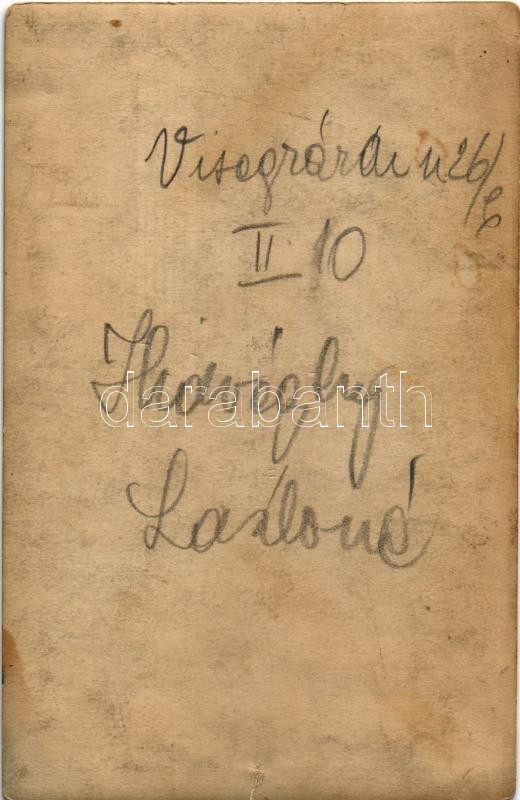 Visegrádi u 26/b
II 10
Lászlóné
darabanth